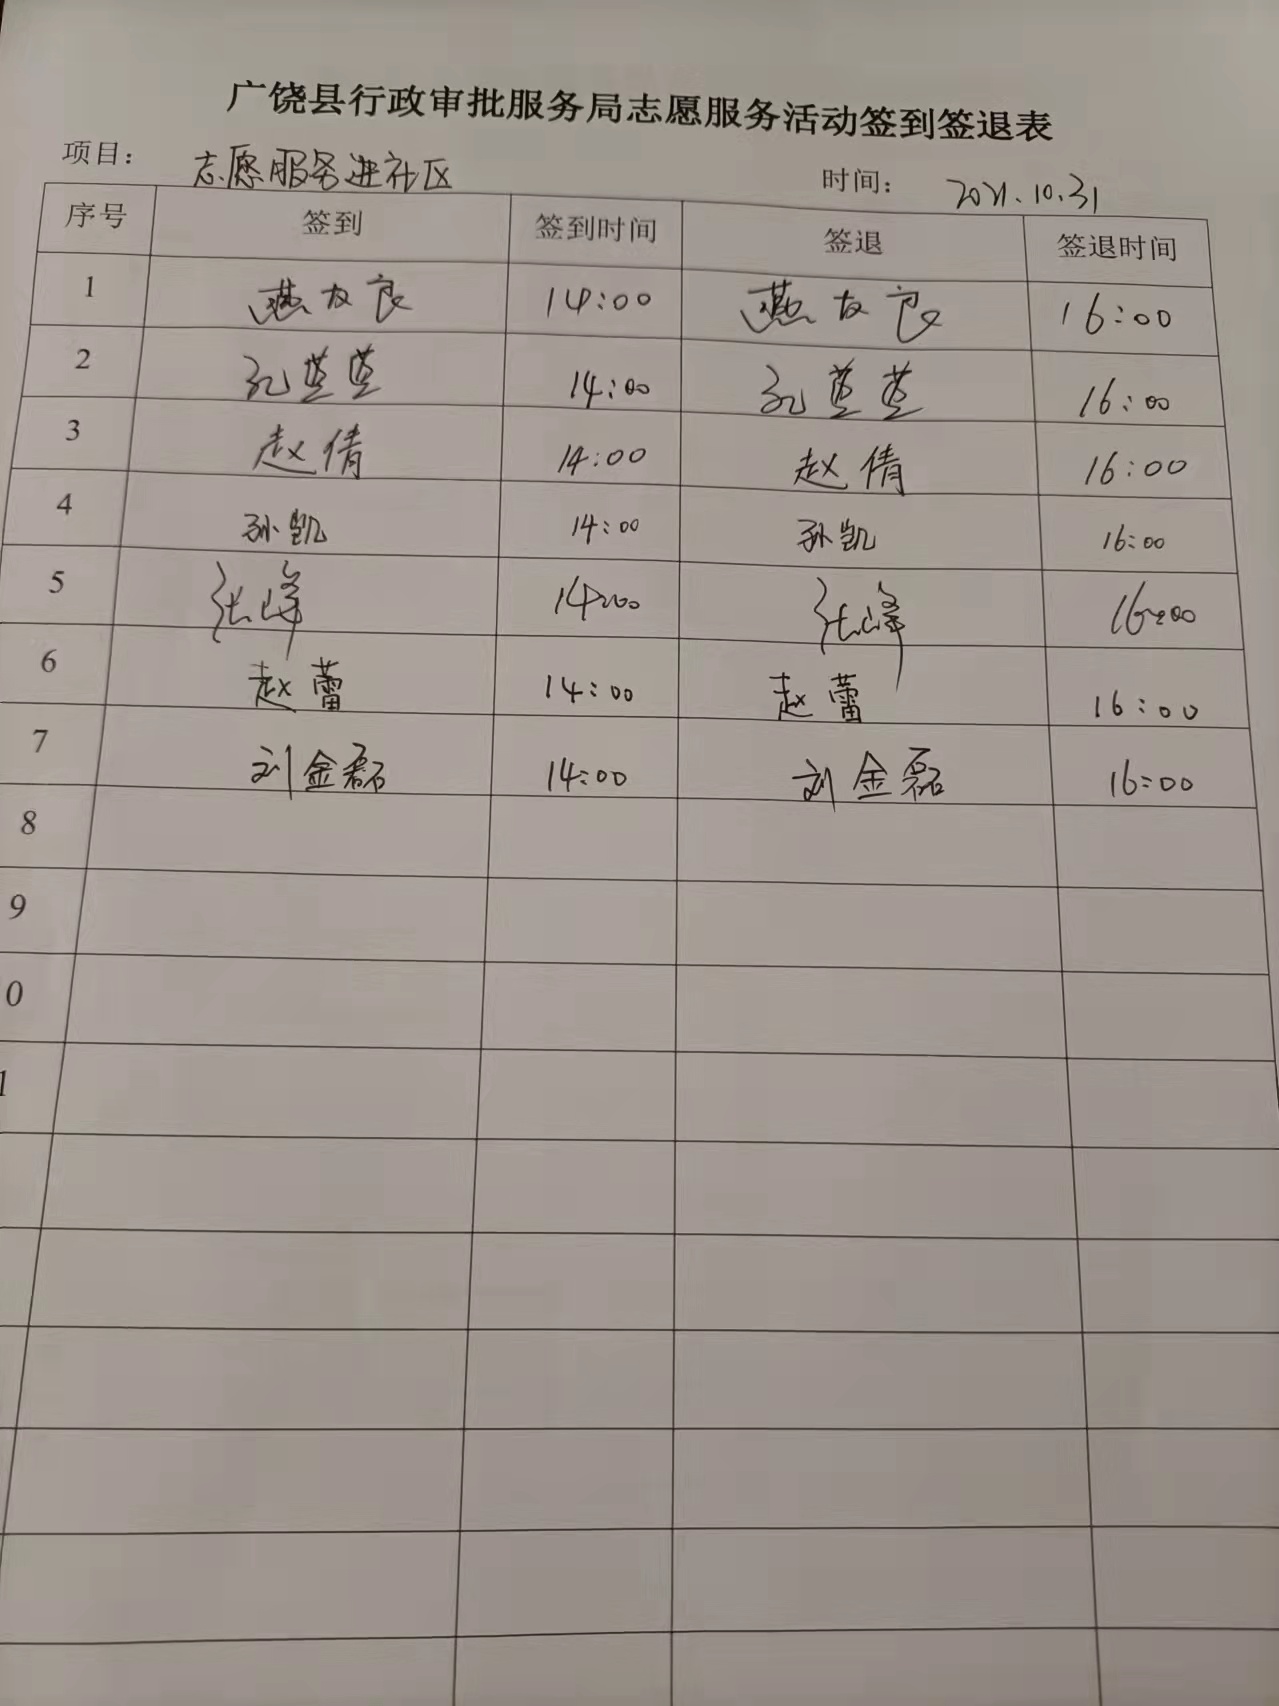 广饶县行政审批服务局志愿服务活动签到签退表
项目： 志愿服务进社区 时间： 2021.10.31
序号 签到 签到时间 签退 签退时间
1 燕友良 14:00 燕友良 16:00
2 孔萱萱 14:00 孔萱萱 16:00
3 赵倩 14:00 赵倩 16:00
4 孙凯 14:00 孙凯 16:00
5 张峰 14:00 张峰 16:00
6 赵蕾 14:00 赵蕾 16:00
7 刘金磊 14:00 刘金磊 16:00
8
9
0
1